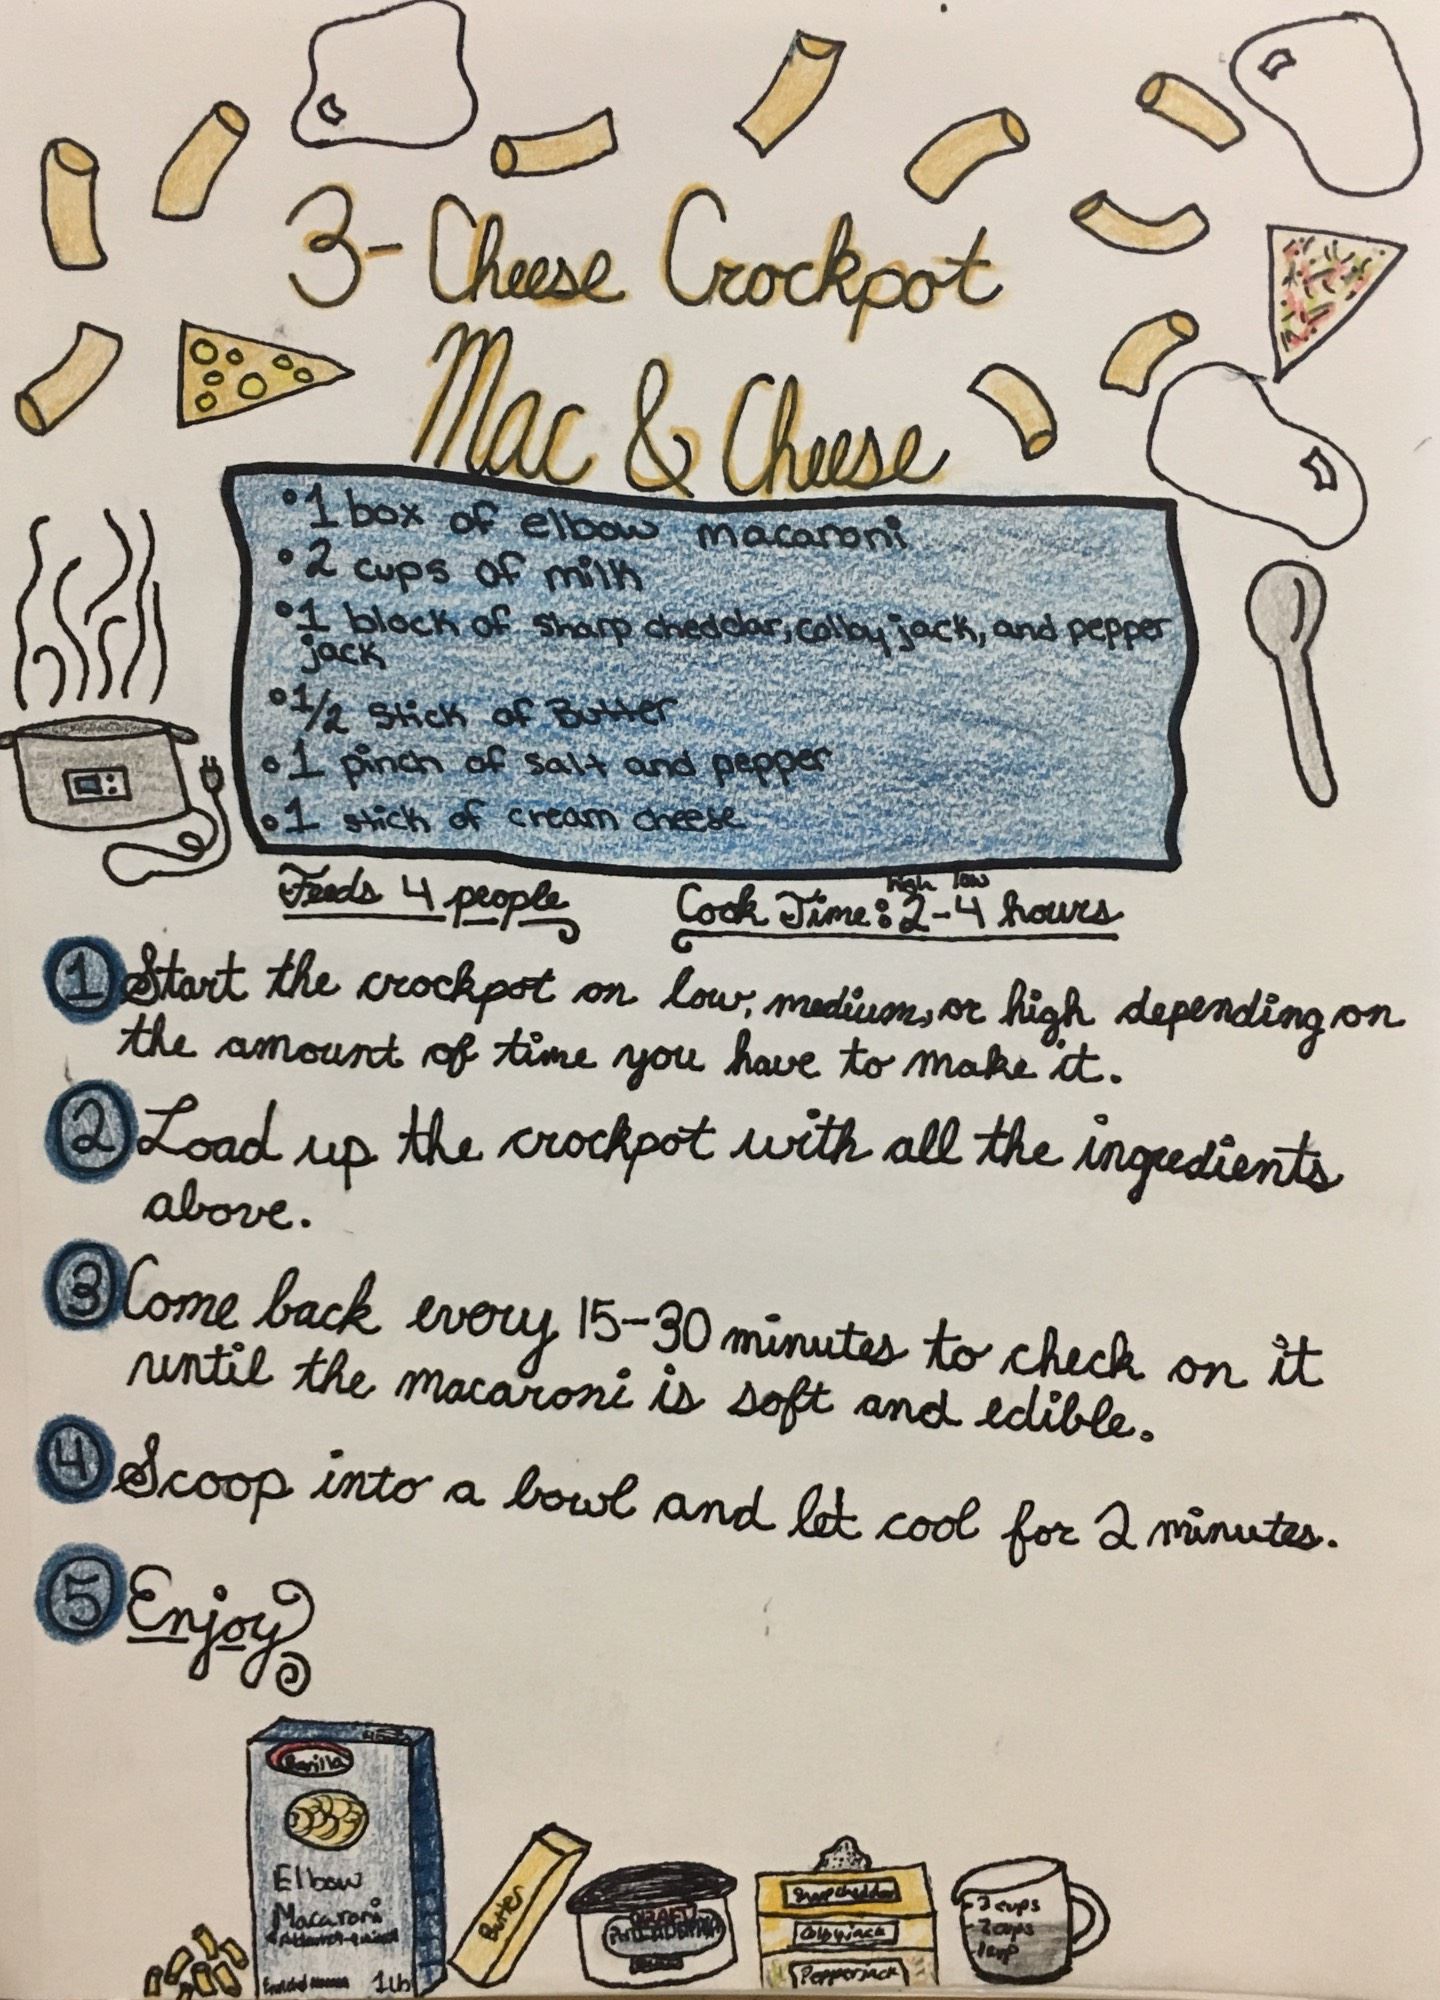 3-Cheese Crockpot
Mac & Cheese
•1 box of elbow macaroni
•2 cups of milk
•1 block of sharp cheddar, colby jack, and pepper
jack
•1/2 stick of Butter
•1 pinch of salt and pepper
•1 stick of cream cheese
high low
Feeds 4 people Cook Time: 2-4 hours
1 Start the crockpot on low, medium, or high depending on
the amount of time you have to make it.
2 Load up the crockpot with all the ingredients
above.
3 Come back every 15-30 minutes to check on it
until the macaroni is soft and edible.
4 Scoop into a bowl and let cool for 2 minutes.
5 Enjoy
Barilla
Elbow
Macaroni
1lb
Butter
KRAFT
PHILADELPHIA
Sharp cheddar
Colby jack
Pepperjack
-3 cups
-2 cups
-1 cup